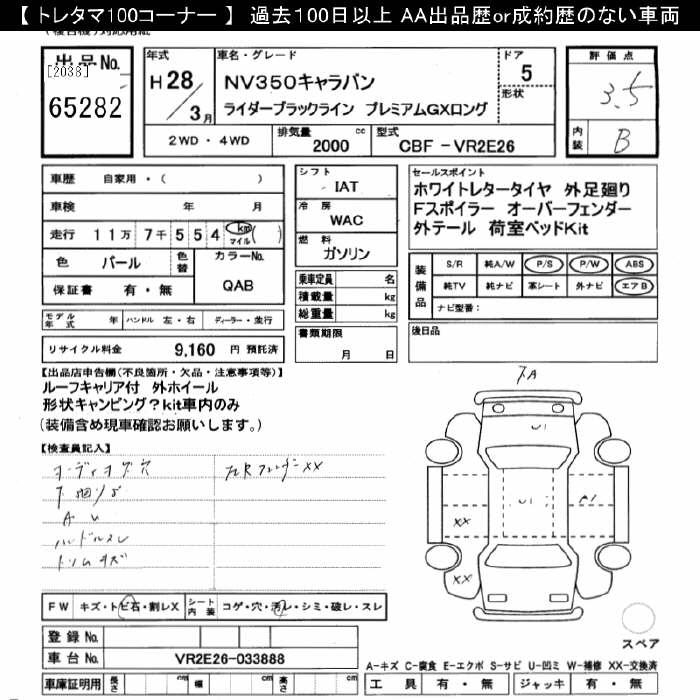 【 トレタマ100コーナー 】 過去100日以上 AA出品歴or成約歴のない車両
出品No.
[2038]
65282
年式
H 28 / 3 月
車名・グレード
NV350キャラバン
ライダーブラックライン プレミアムGXロング
ドア
5
形状
評価点
3.5
内装
B
2WD ・ 4WD
排気量
2000 cc
型式
CBF - VR2E26
車歴 自家用・( )
車検 年 月
走行 11万 7千 5 5 4 km マイル ( )
色 パール 色替 カラーNo.
保証書 有・無 QAB
モデル年式 年 ハンドル 左・右 ディーラー・並行
リサイクル料金 9,160 円 預託済
シフト
IAT
冷房
WAC
燃料
ガソリン
乗車定員 名
積載量 kg
総重量 kg
書類期限
月 日
セールスポイント
ホワイトレタータイヤ 外足廻り
Fスポイラー オーバーフェンダー
外テール 荷室ベッドKit
装備品
S/R 純A/W P/S P/W ABS
純TV 純ナビ 革シート 外ナビ エアB
ナビ型番:
後日品
【出品店申告欄(不良箇所・欠品・注意事項等)】
ルーフキャリア付 外ホイール
形状キャンピング?kit車内のみ
(装備含め現車確認お願いします。)
【検査員記入】
A U
ハンドルスレ
トリムキズ
フA
U1
U1
A1
XX
XX
FW キズ・トビ石・割レX シート内装 コゲ・穴・汚レ・シミ・破レ・スレ
登録 No.
車台 No. VR2E26-033888
車庫証明用 長さ cm 幅 cm 高さ cm
スペア
A-キズ C-腐食 E-エクボ S-サビ U-凹ミ W-補修 XX-交換済
工具 有・無 ジャッキ 有・無